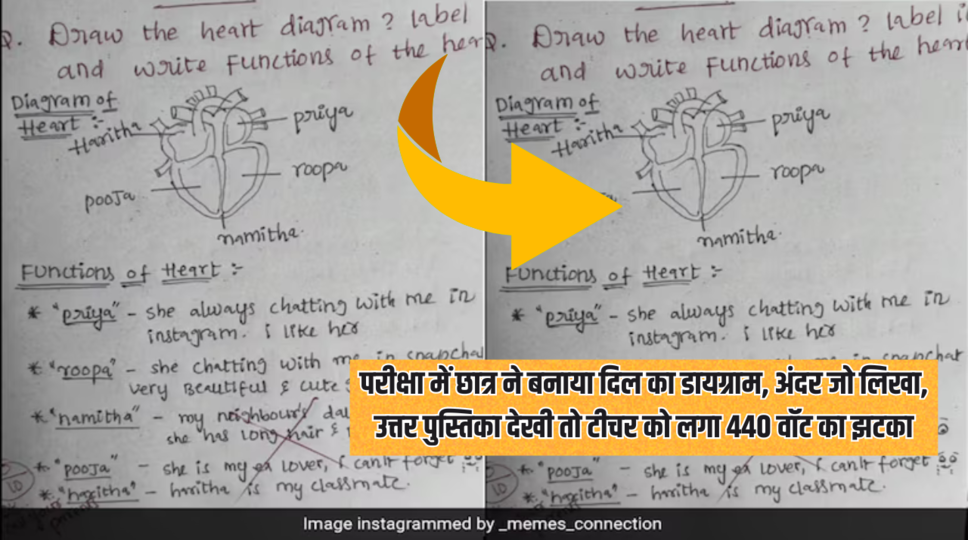 Q. Draw the heart diagram? label
and write Functions of the hear
Diagram of
Heart :-
Haritha
priya
roopa
pooja
namitha.
Functions of Heart :-
* "priya" - she always chatting with me in
instagram. i like her
* "roopa" - she chatting with me in snapchat
very Beautiful & cute
* "namitha" - my neighbour's
she has long hair &
* "pooja" - she is my ex lover, i can't forget
* "haritha" - haritha is my classmate.
10
Q. Draw the heart diagram? label i
and write Functions of the heart
Diagram of
Heart :-
Haritha
priya
roopa
namitha.
Functions of Heart :-
* "priya" - she always chatting with me in
instagram. i like her
snapchat
* "pooja" - she is my ex lover, i can't forget
* "haritha" - haritha is my classmate.
10
परीक्षा में छात्र ने बनाया दिल का डायग्राम, अंदर जो लिखा,
उत्तर पुस्तिका देखी तो टीचर को लगा 440 वॉट का झटका
Image instagrammed by _memes_connection